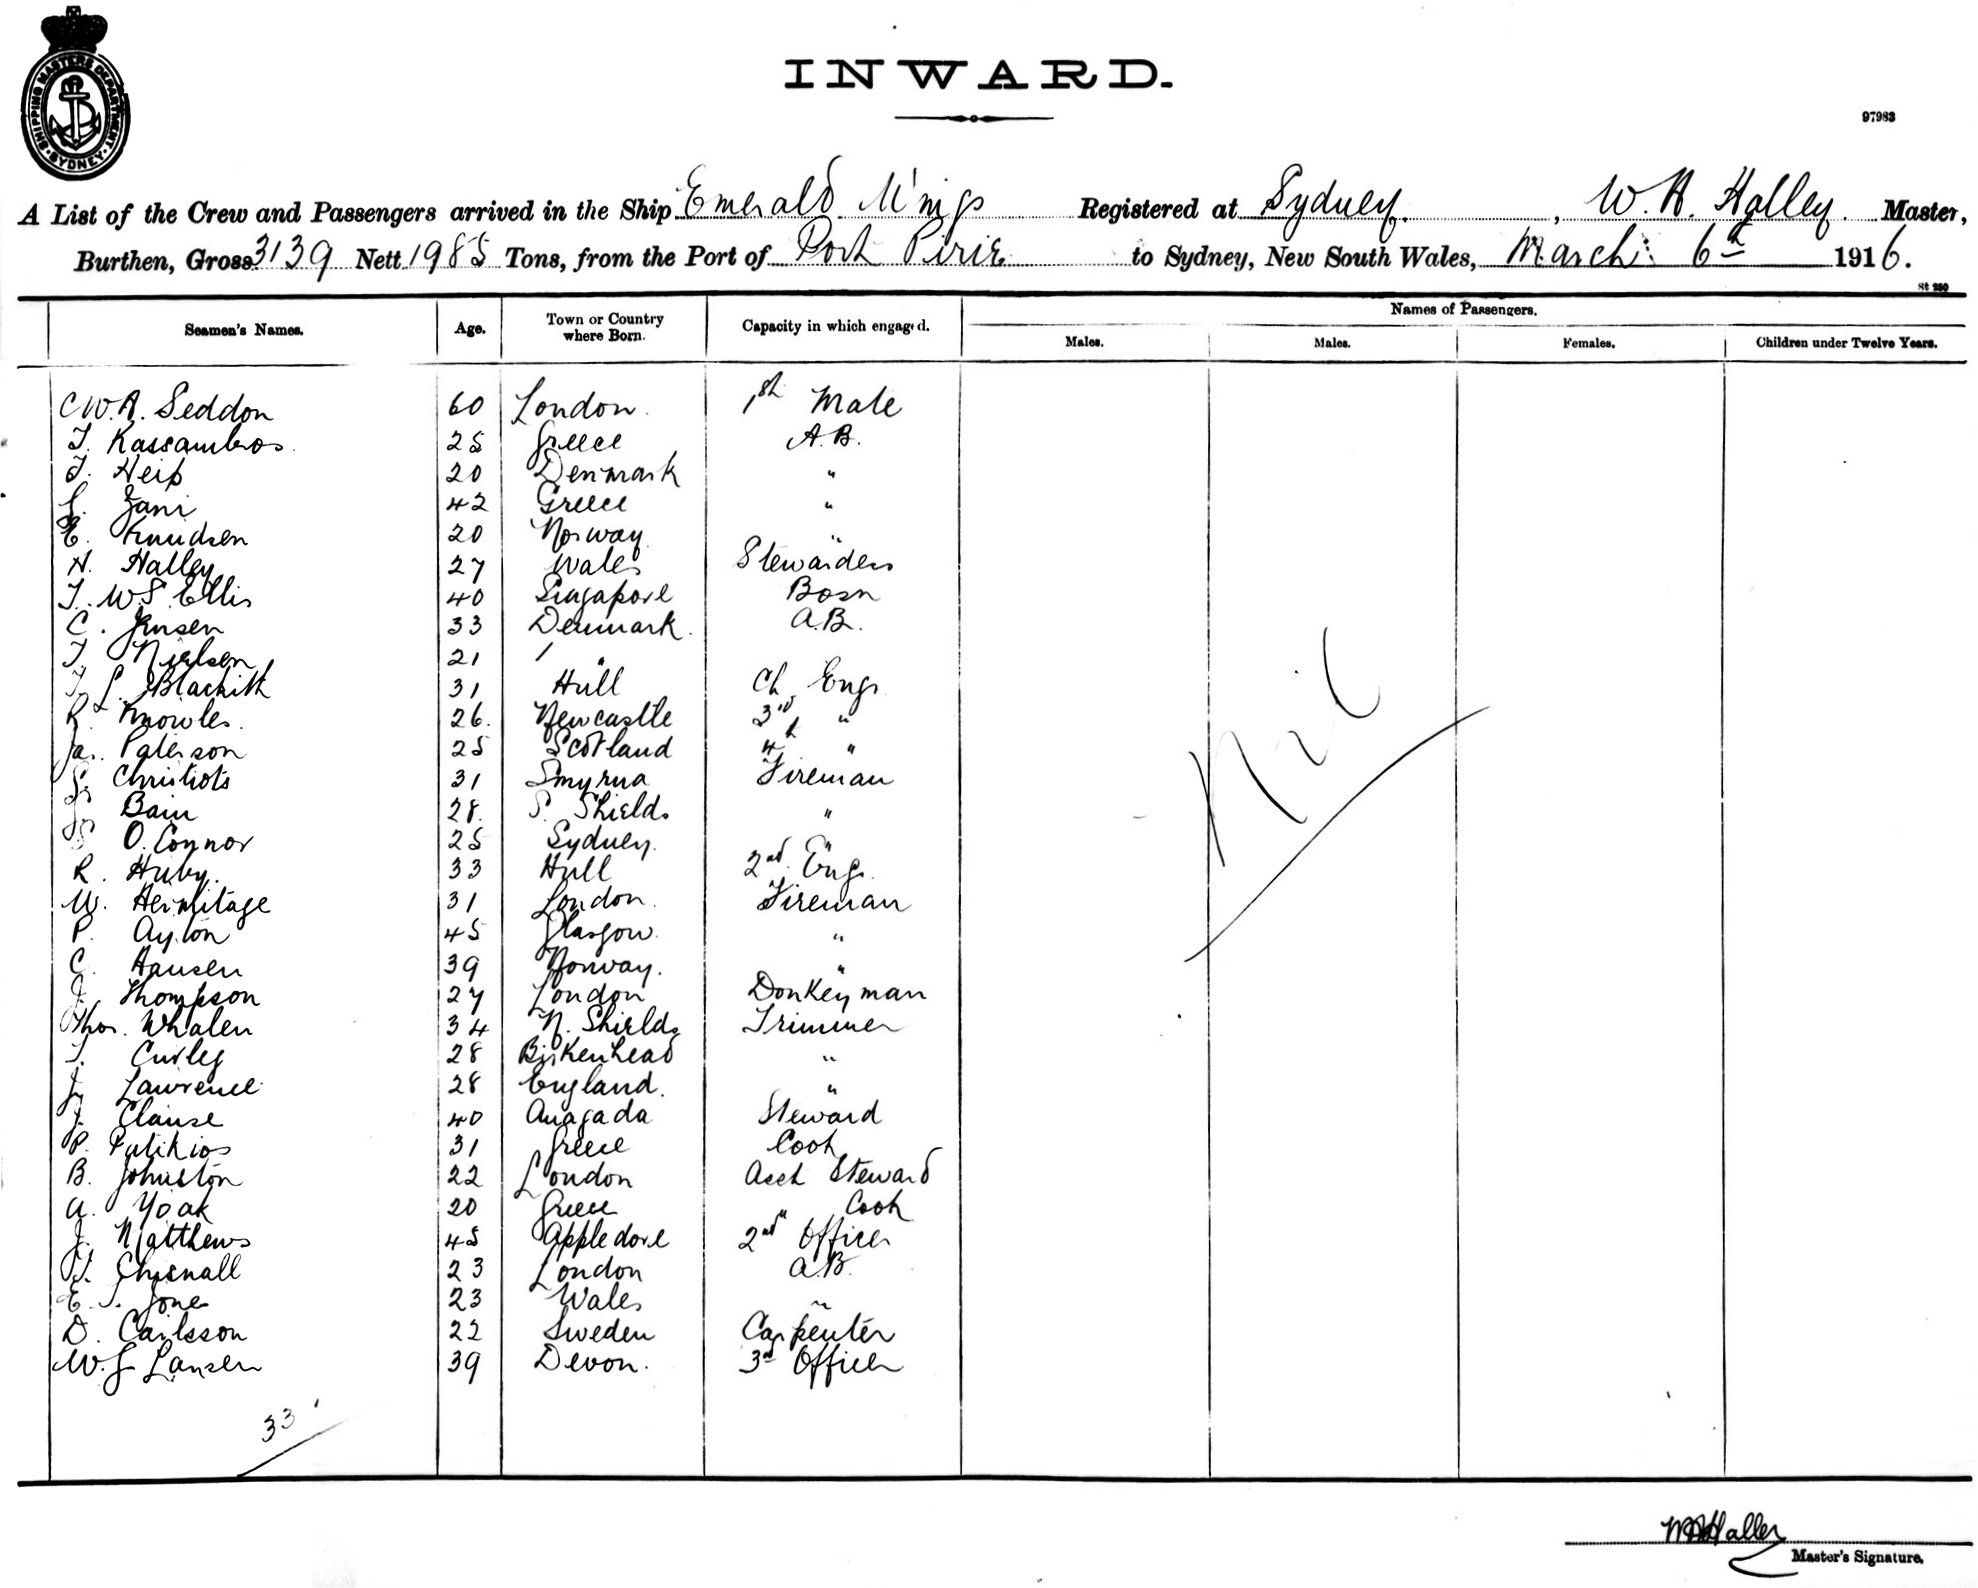 SHIPPING MASTERS DEPARTMENT
SYDNEY
INWARD.
97983
A List of the Crew and Passengers arrived in the Ship Emerald Wings Registered at Sydney, W. H. Halley Master,
Burthen, Gross 3139 Nett 1985 Tons, from the Port of Port Pirie to Sydney, New South Wales, March 6th 1916.
St 250
Seamen's Names. Age. Town or Country where Born. Capacity in which engaged. Names of Passengers.
Males. Males. Females. Children under Twelve Years.
C W. A. Seddon 60 London. 1st Mate
T. Kassambros 25 Greece A.B.
20 Denmark "
Zani 42 Greece "
E. Knudsen 20 Norway "
H. Halley 27 Wales Stewardess
T. W. S. Ellis 40 Singapore Bosn
C. Jensen 33 Denmark. A.B.
T. Nielsen 21 "
Blackith 31 Hull Ch Engr
R. Knowles. 26. Newcastle 3rd "
Jas. Paterson 25 Scotland 4th "
31 Smyrna Fireman
Bain 28. S. Shields "
O. Connor 25 Sydney. "
R. Huby. 33 Hull 2nd Engr.
W. Hermitage 31 London. Fireman
P. Ayton 45 Glasgow. "
C. Hansen 39 Norway. "
J. Thompson 27 London Donkeyman
Thos. Whalen 34 N. Shields Trimmer
T. Curley 28 Birkenhead "
J. Lawrence 28 England. "
J. Clause 40 Anagada Steward
P. Patikios 31 Greece Cook
B. Johnston 22 London Asst Steward
A. Yoak 20 Greece " Cook
J. Matthews 45 Appledore 2nd Officer
T. Chisnall 23 London A.B.
E. T. Jones 23 Wales "
D. Carlsson 22 Sweden Carpenter
W. J Lansen 39 Devon. 3rd Officer
Nil
33
WHHalley
Master's Signature.